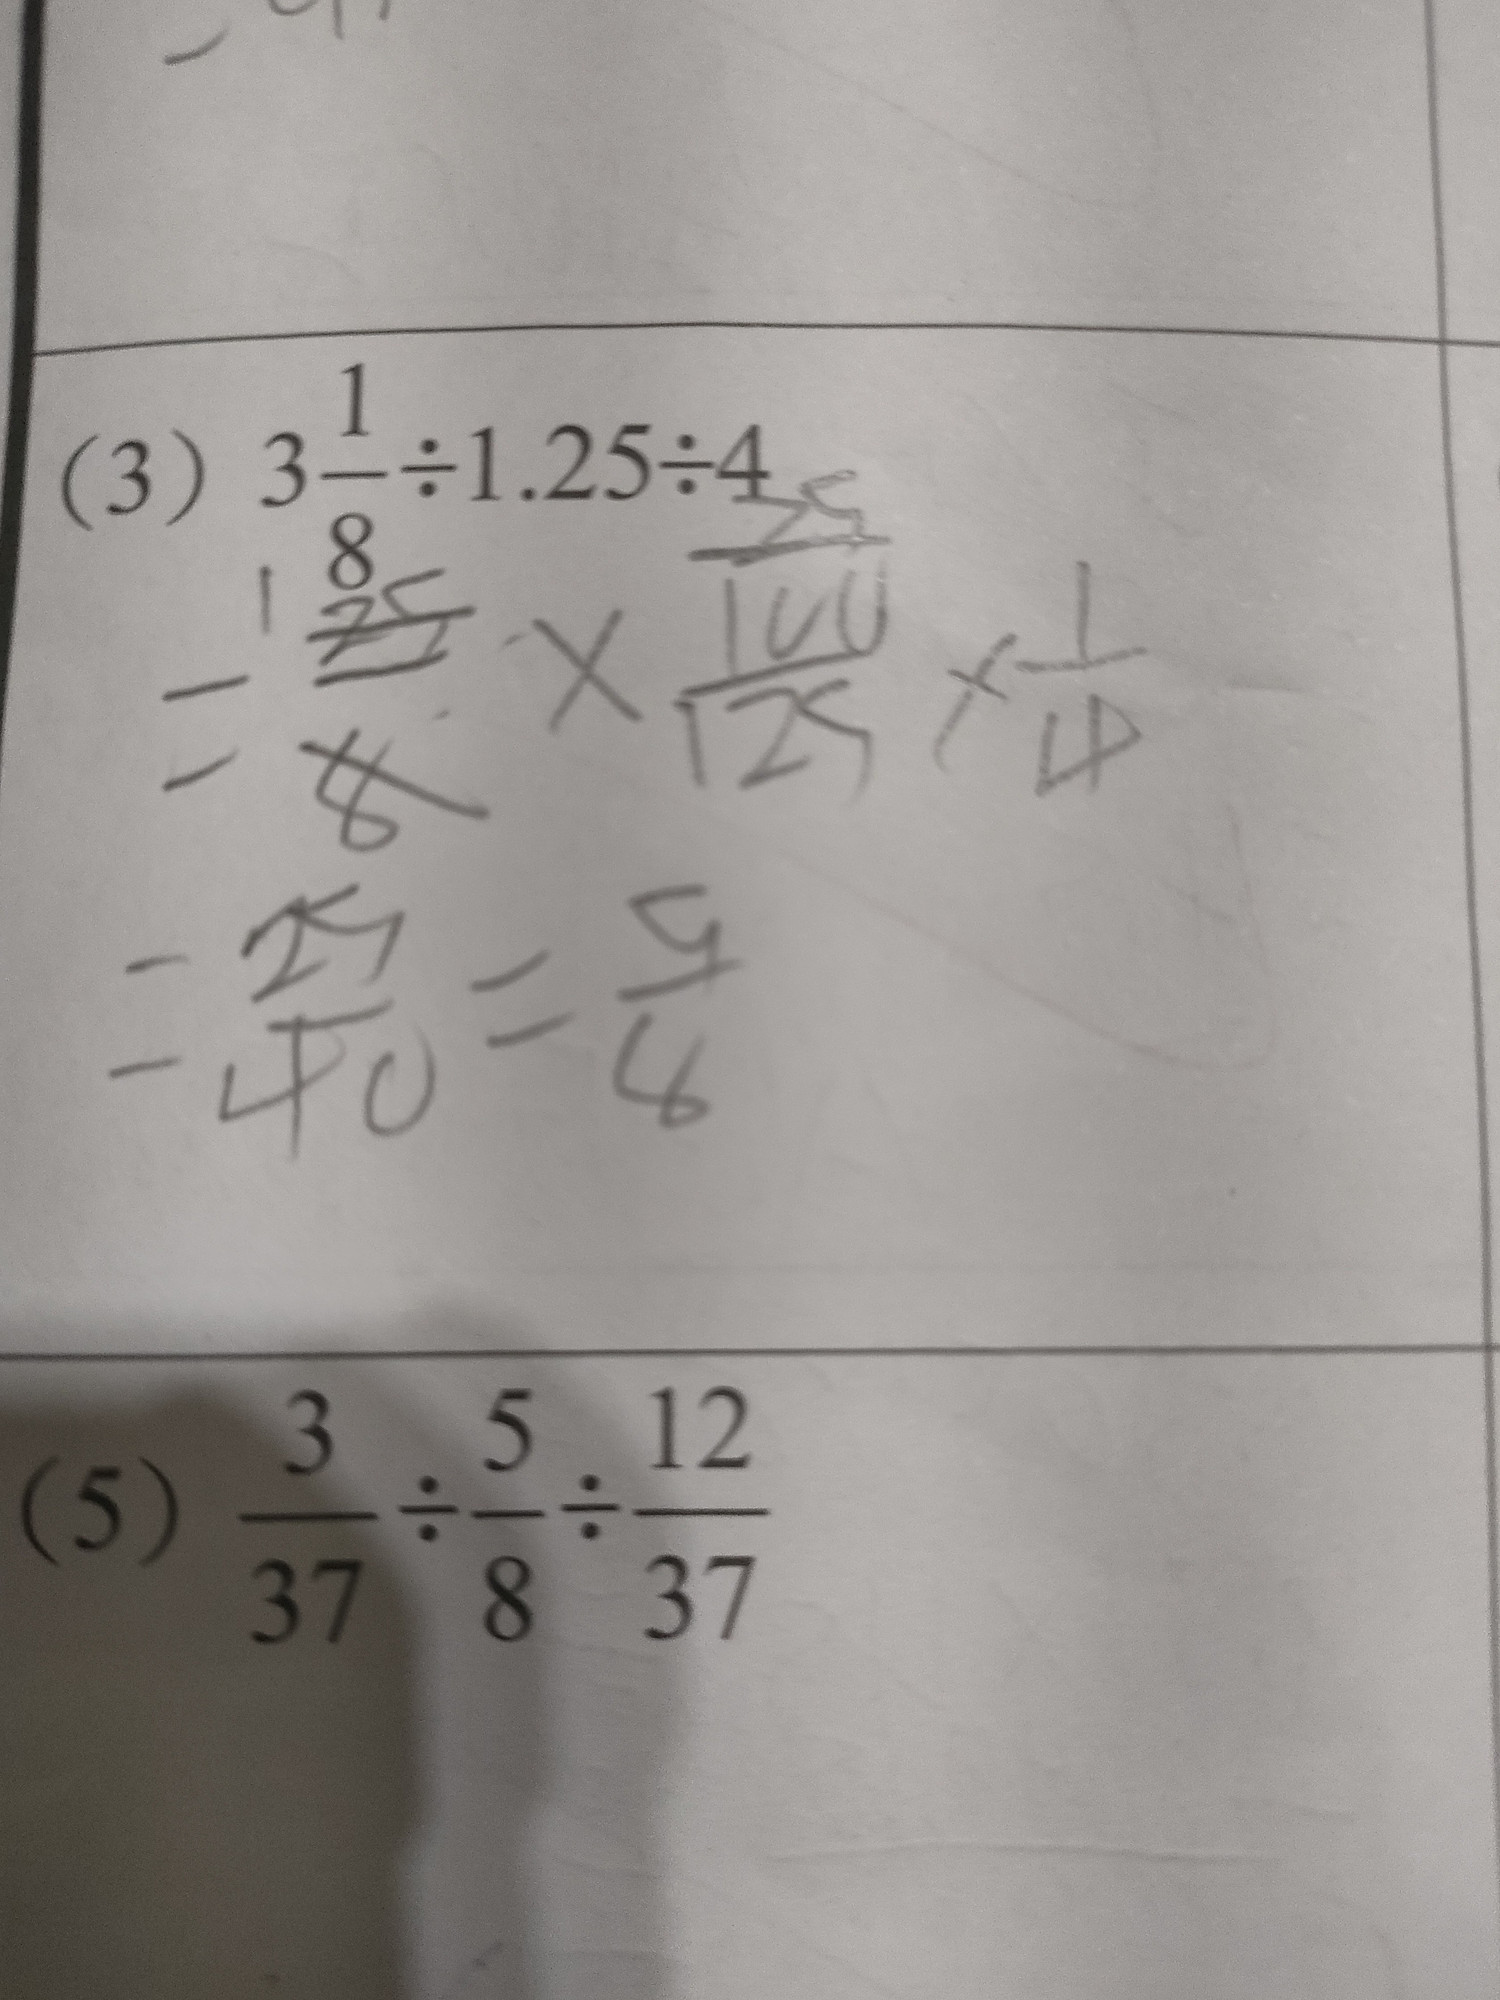 (3) 3 1/8 ÷1.25÷4
= 25/8 × 100/125 × 1/4
= 25/40 = 5/8
(5) 3/37 ÷ 5/8 ÷ 12/37